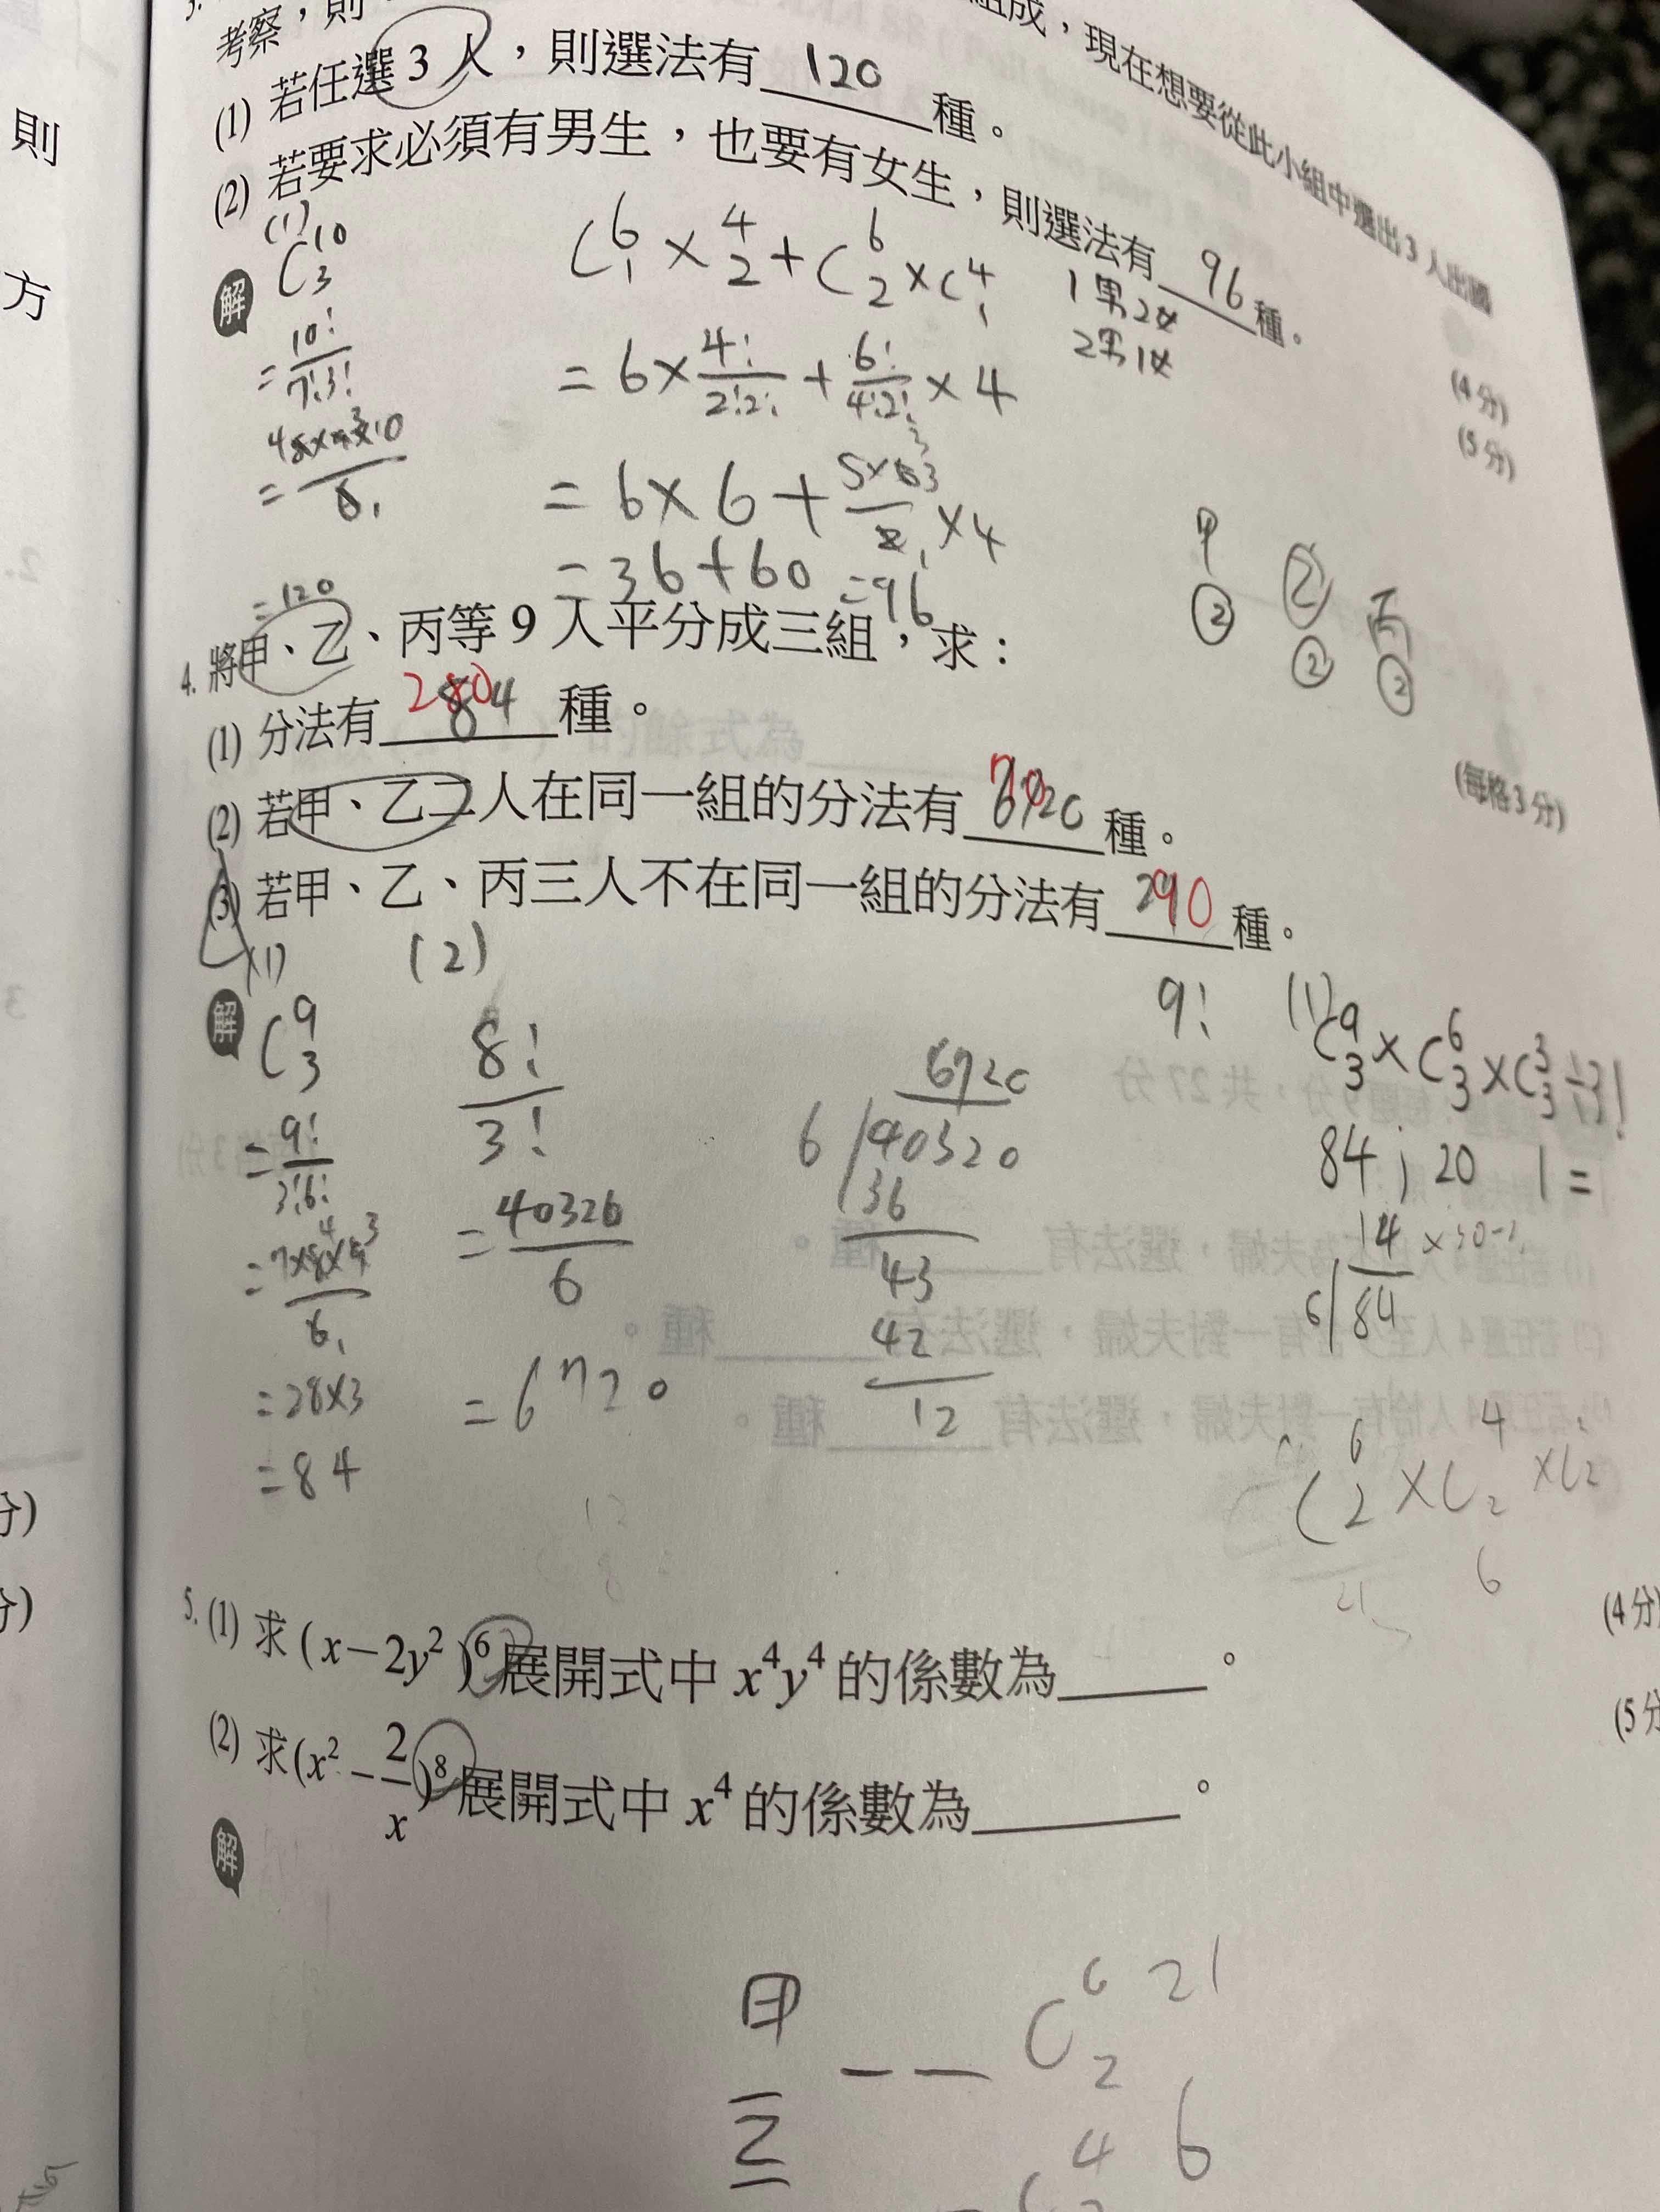 考察,則
組成,現在想要從此小組中選出3人出國
(1) 若任選3人,則選法有 120 種。
(4分)
(2) 若要求必須有男生,也要有女生,則選法有 96 種。
(5分)
(1)
C 10 3
解
= 10! / 7!3!
= 120
C 6 1 × 4 2 + C 6 2 × C 4 1
1男2女
2男1女
= 6 × 4! / 2!2! + 6! / 4!2! × 4
= 6 × 6 + 5×6 3 / 2 1 × 4
= 36 + 60 = 96
甲 乙 丙
② ② ②
4. 將甲、乙、丙等9人平分成三組,求:
(每格3分)
(1) 分法有 280 84 種。
(2) 若甲、乙二人在同一組的分法有 70 6720 種。
(3) 若甲、乙、丙三人不在同一組的分法有 90 種。
解
(1)
C 9 3
= 9! / 3!6!
= 7×8×9 / 6
= 28×3
= 84
(2)
8! / 3!
= 40320 / 6
= 6720
6720
6 40320
36
43
42
12
9!
(1) C 9 3 × C 6 3 × C 3 3 ÷ 3!
84 20 1 =
14
6 84
C 6 2 × C 4 2 × C 2 2
6
5. (1) 求(x−2y²)⁶展開式中x⁴y⁴的係數為 。
(4分)
(2) 求(x²−2/x)⁸展開式中x⁴的係數為 。
(5分
解
甲 — — C 6 2 21
乙
4 6
則
方
分)
分)